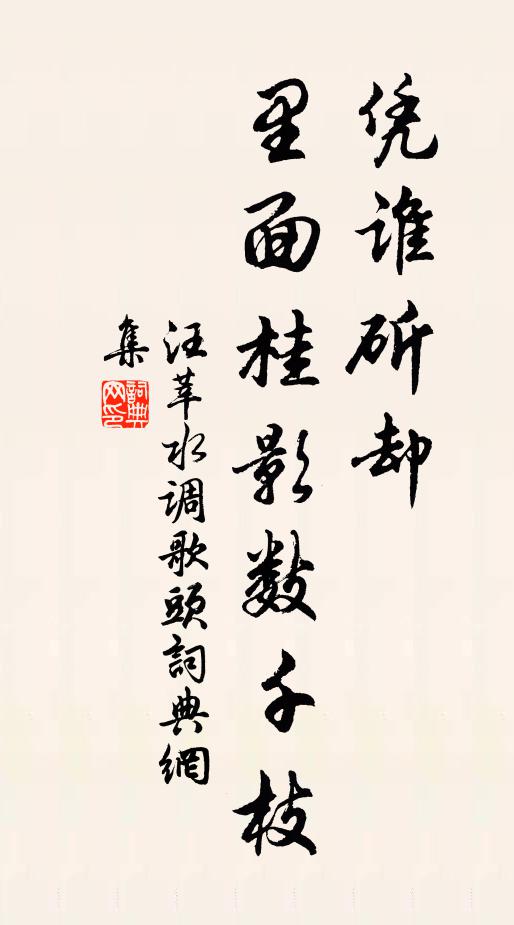 凭谁斫却
里面桂影数千枝
汪莘水调歌頭詞典網
集
詞典网印